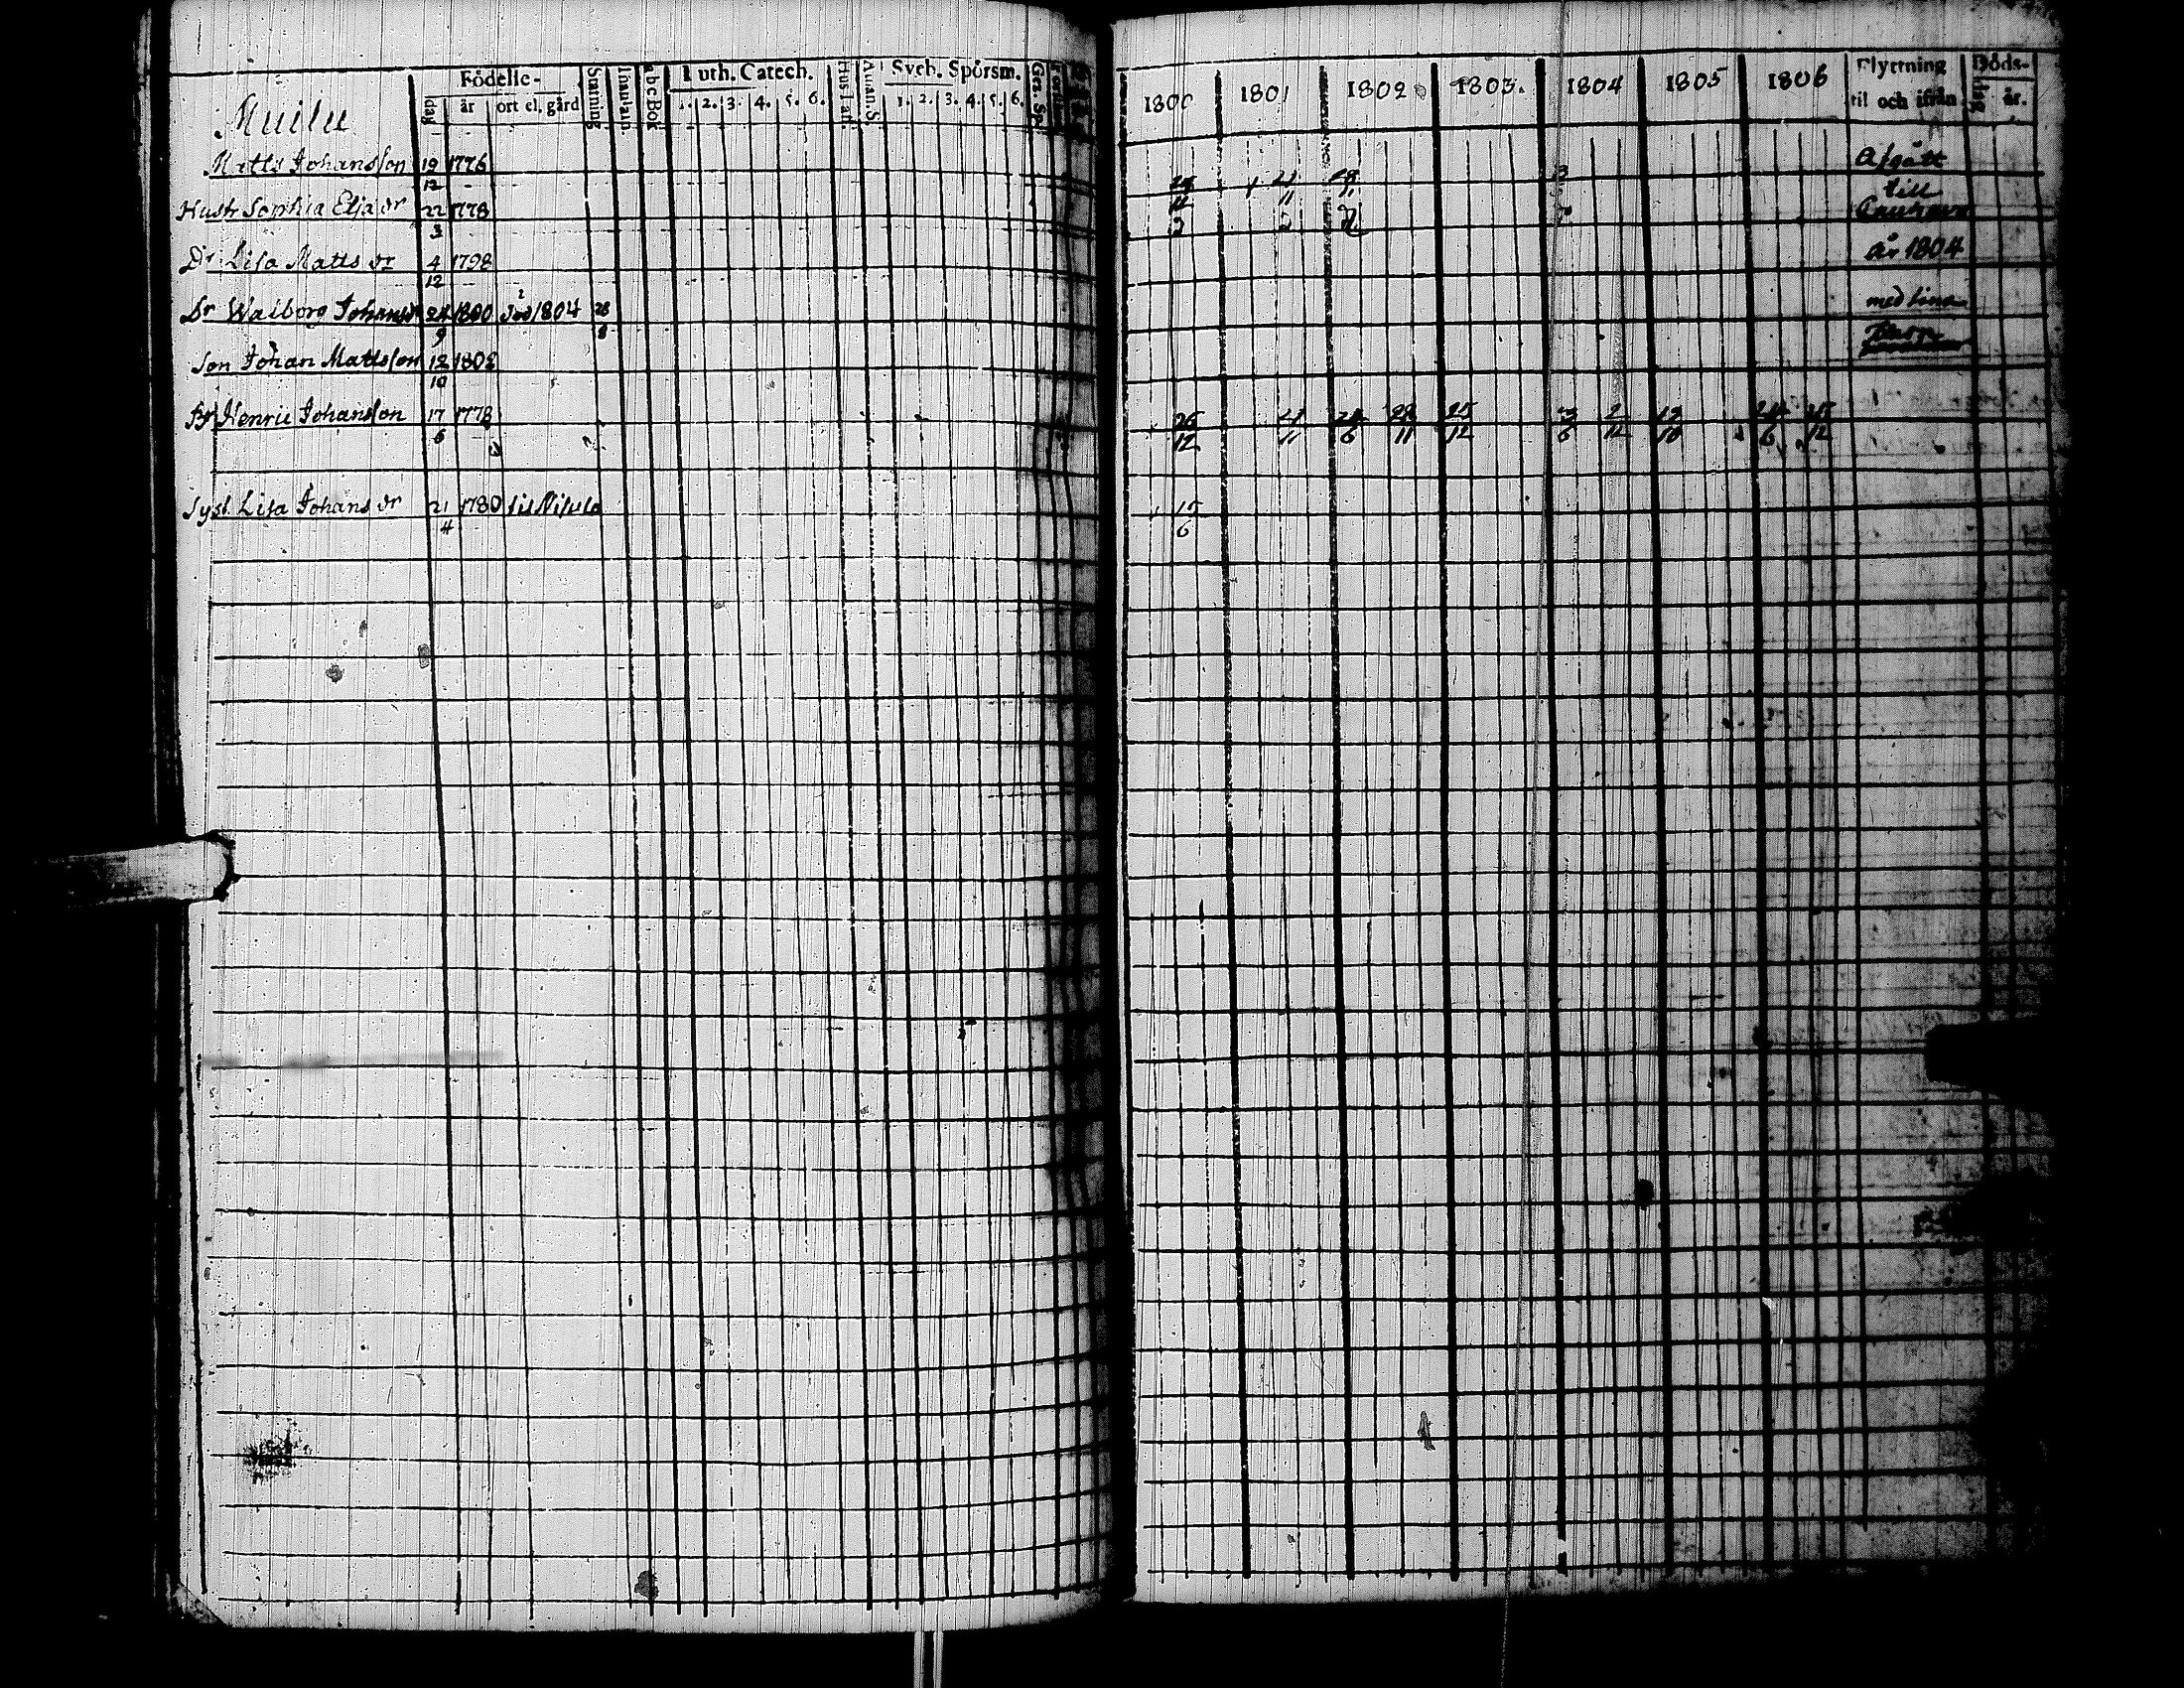 Födelse-
dag år ort el. gård
Stafning
Innanlän.
abc Bok
Luth. Catech.
1. 2. 3. 4. 5. 6.
Hus Tafl.
Athan. S.
Sveb. Spörsm.
1. 2. 3. 4. 5. 6.
1800 1801 1802 1803. 1804 1805 1806
Flyttning
til och ifrån
Döds-
dag år.
Muilu
Matts Johansson 19 1776 Afgått
12
till
Hustr Sophia Eljadr 22 1778
3
Dr Lisa Matts dr 4 1798 år 1804
12
Dr Walborg Johansdr 24 1800 död 1804 28 med sina
9 8
Son Johan Mattsson 12 1802
10
Br Henric Johansson 17 1778 26 4 24 28 25 3 2 12 24 25
6 12 11 6 11 12 6 12 10 6 12
Syst. Lisa Johans dr 21 1780 til Nisula 15
4 6